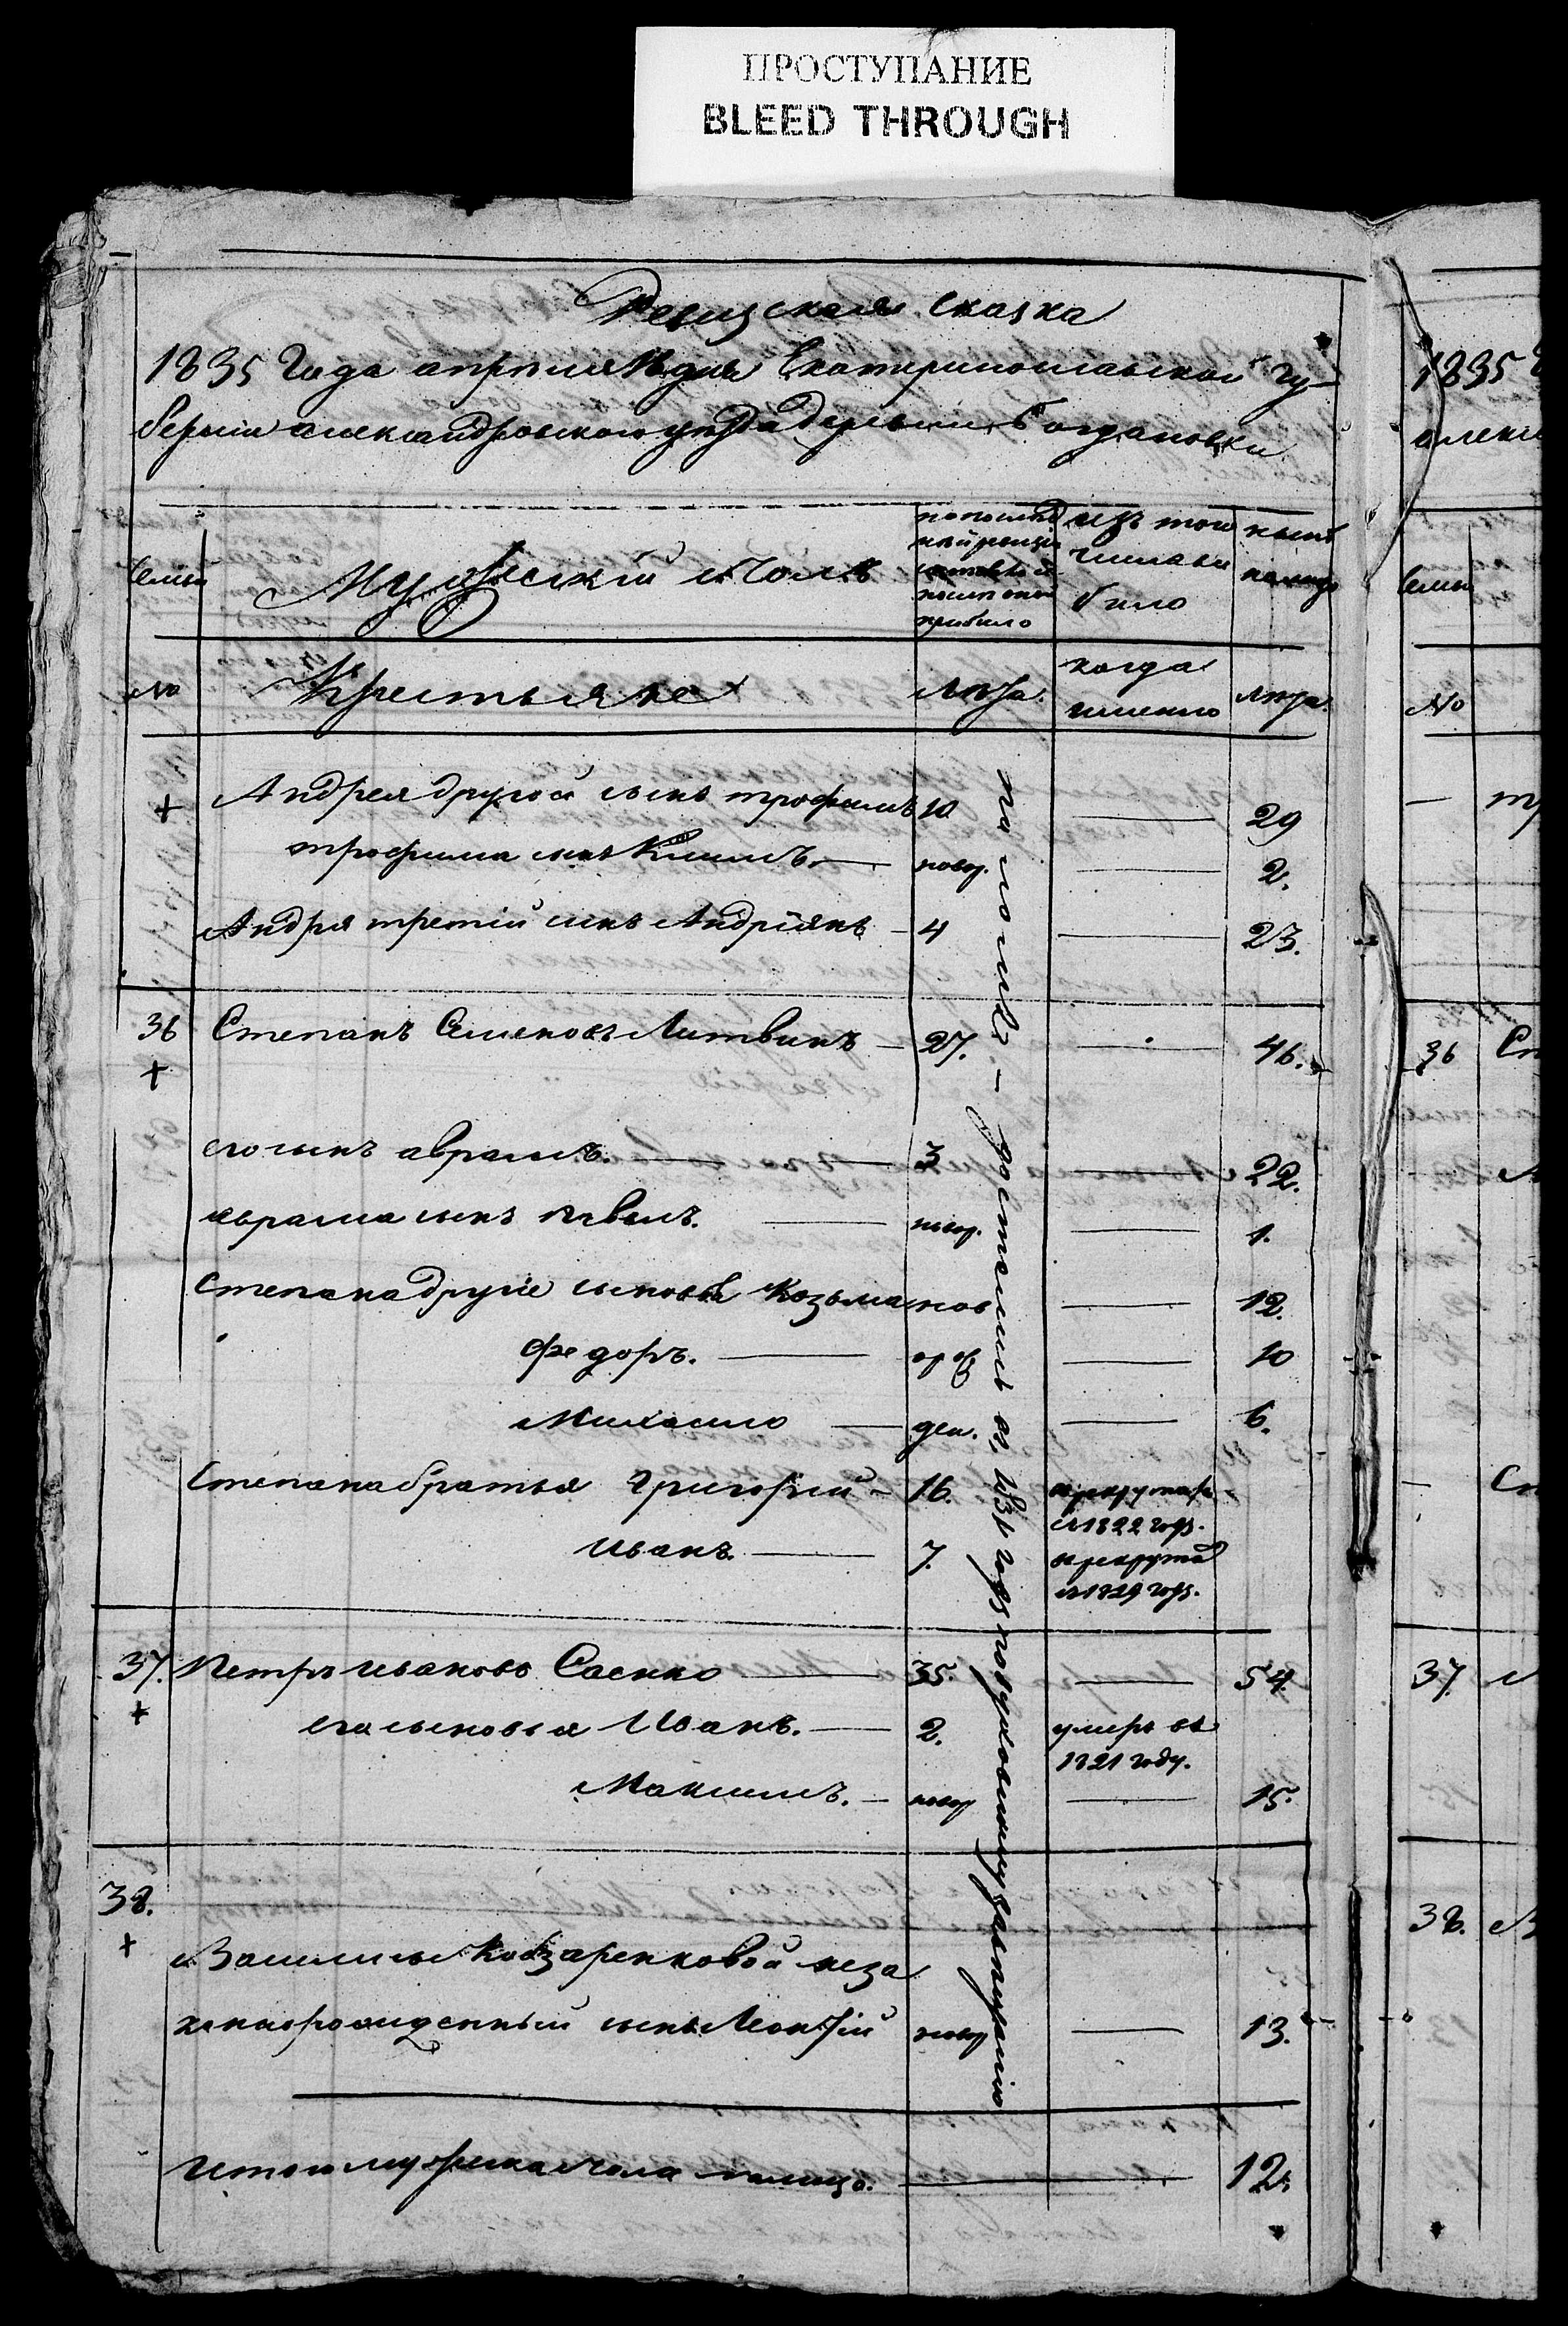 ПРОСТУПАНИЕ
BLEED THROUGH
Ревизская сказка
1835 Года апреля дня Екатеринославской гу-
бернии александровского уезда деревни Богдановки
Семьи
Мужеский полъ
по послед
ней ревизіи
состояло и
после оной
прибыло
изъ того
числа вы
было
ныне
налицо
№
Крестьяне
лета
когда
именно
лета
Андрея другой сынъ трофимъ 10 29
трофима сынъ Климъ новор. 2.
Андрея третій сынъ Андріянъ 4 23.
36 Степанъ Семеновъ Литвинъ 27. 46.
его сынъ аврамъ 3 22.
аврама сынъ павелъ. новор. 1.
Степана другіе сыновья Козьма нов 12.
федоръ. 10
Михайло 6.
Степана братья Григорий 16. в рекрутах
с 1822 году.
иванъ 7. в рекрутах
с 1829 году.
37. Петръ ивановъ Саенко 35. 54
его сыновья Иванъ. 2. умеръ въ
1821 году.
Максимъ. новор 15.
38.
Василисы Кобзаренковой неза
коннорожденный сынъ Леонтій новор 13.
Итого мужеска пола налицо. 12.
1835
алекс
Семьи
№
36 Ст
37
38.